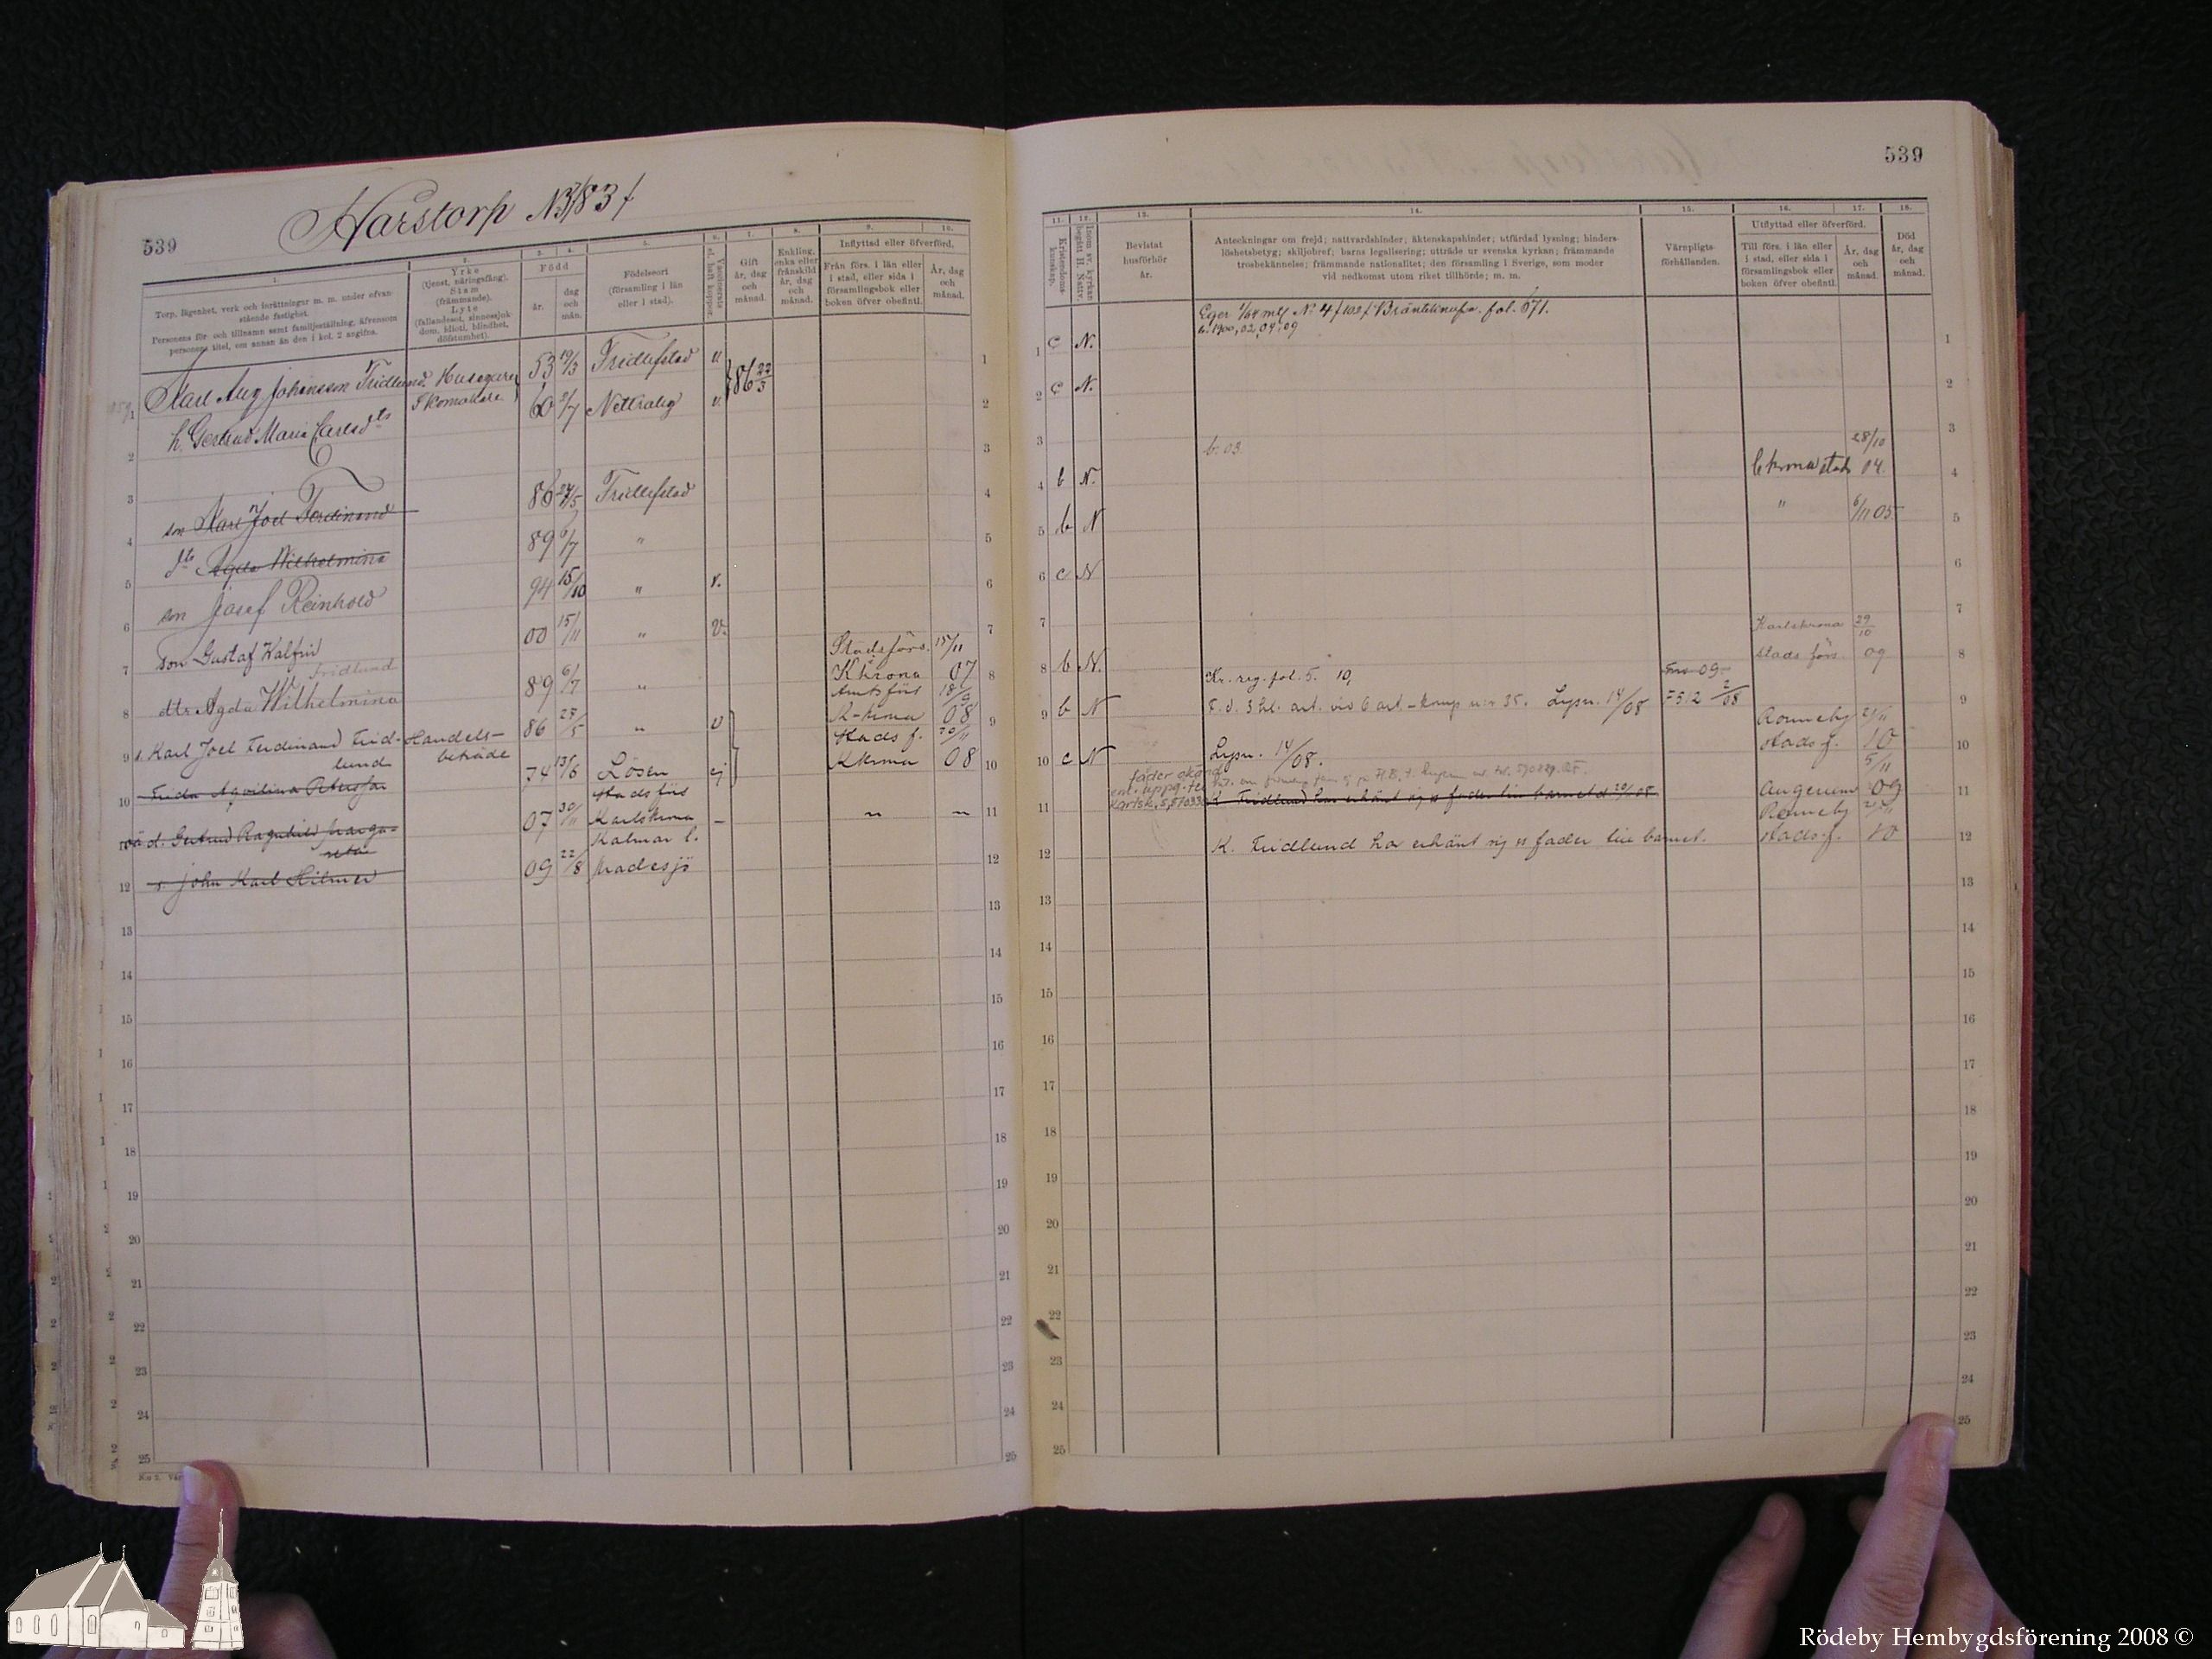 539
Harstorp N 3/83 f
1.
Torp, lägenhet, verk och inrättningar m. m. under ofvanstående fastighet.
Personens för- och tillnamn samt familjeställning, äfvensom personens titel, om annan än den i kol. 2 angifna.
2.
Yrke
(tjenst, näringsfång).
Stam
(främmande).
Lyte
(fallandesot, sinnessjukdom, idioti, blindhet, döfstumhet).
3. 4.
Född
år.
dag och mån.
5.
Födelseort
(församling i län eller i stad).
6.
Vaccinerats el. haft koppor.
7.
Gift
år, dag och månad.
8.
Enkling, enka eller frånskild år, dag och månad.
9. 10.
Inflyttad eller öfverförd.
Från förs. i län eller i stad, eller sida i församlingsbok eller boken öfver obefintl.
År, dag och månad.
1 Karl Aug Johansson Fridlund Husegare Skomakare 53 19/3 Fridlefstad v. 86 22/3
2 h. Gertrud Maria Carlsdtr 60 2/7 Nettraby v.
3
4 son Karl Joel Ferdinand 86 25/5 Fridlefstad
5 dtr Agda Wilhelmina 89 6/7 "
6 son Josef Reinhold 94 15/10 " v.
7 son Gustaf Walfrid 00 15/11 " v.
8 dtr Agda Wilhelmina Fridlund 89 6/7 " Stadsförs. Kkrona 15/11 07
9 s. Karl Joel Ferdinand Fridlund Handelsbeträde 86 25/5 " v Amtsförs K-krona 18/9 08
10 Frida Aqvilina Petersson 74 13/6 Lösen ej Stads f. Kkrona 20/11 08
11 d. Gertrud Ragnhild Margareta 07 30/11 Stadsförs Karlskrona – " "
12 s. John Karl Hilmer 09 22/8 Kalmar l. Madesjö
13
14
15
16
17
18
19
20
21
22
23
24
25
539
11.
Kristendomskunskap.
12.
Inom sv. kyrkan begått H. Nattv.
13.
Bevistat husförhör år.
14.
Anteckningar om frejd; nattvardshinder; äktenskapshinder; utfärdad lysning; hinderslöshetsbetyg; skiljobref; barns legalisering; utträde ur svenska kyrkan; främmande trosbekännelse; främmande nationalitet; den församling i Sverige, som moder vid nedkomst utom riket tillhörde; m. m.
15.
Värnpligtsförhållanden.
16. 17.
Utflyttad eller öfverförd.
Till förs. i län eller i stad, eller sida i församlingsbok eller boken öfver obefintl.
År, dag och månad.
18.
Död
år, dag och månad.
1 c N. Eger 1/64 mtl No 4 fol. 671.
b. 1900, 02, 04, 09
2 c N.
3
4 b N. b. 03. Ckrona stads 28/10 04.
5 b N " 6/11 05
6 c N
7
8 b N. Karlskrona stads förs. 29/10 09
9 b N Kr. reg. fol. 5. 10, Lysn. 14/08 Ronneby stads f. 21/11 10
10 c N Lysn. 14/08. Augerum 5/11 09
11 K. Fridlund har erkänt sig ss fader till barnet d 20/08 Ronneby stads f. 21/11 10
12 K. Fridlund har erkänt sig ss fader till barnet.
13
14
15
16
17
18
19
20
21
22
23
24
25
Rödeby Hembygdsförening 2008 ©